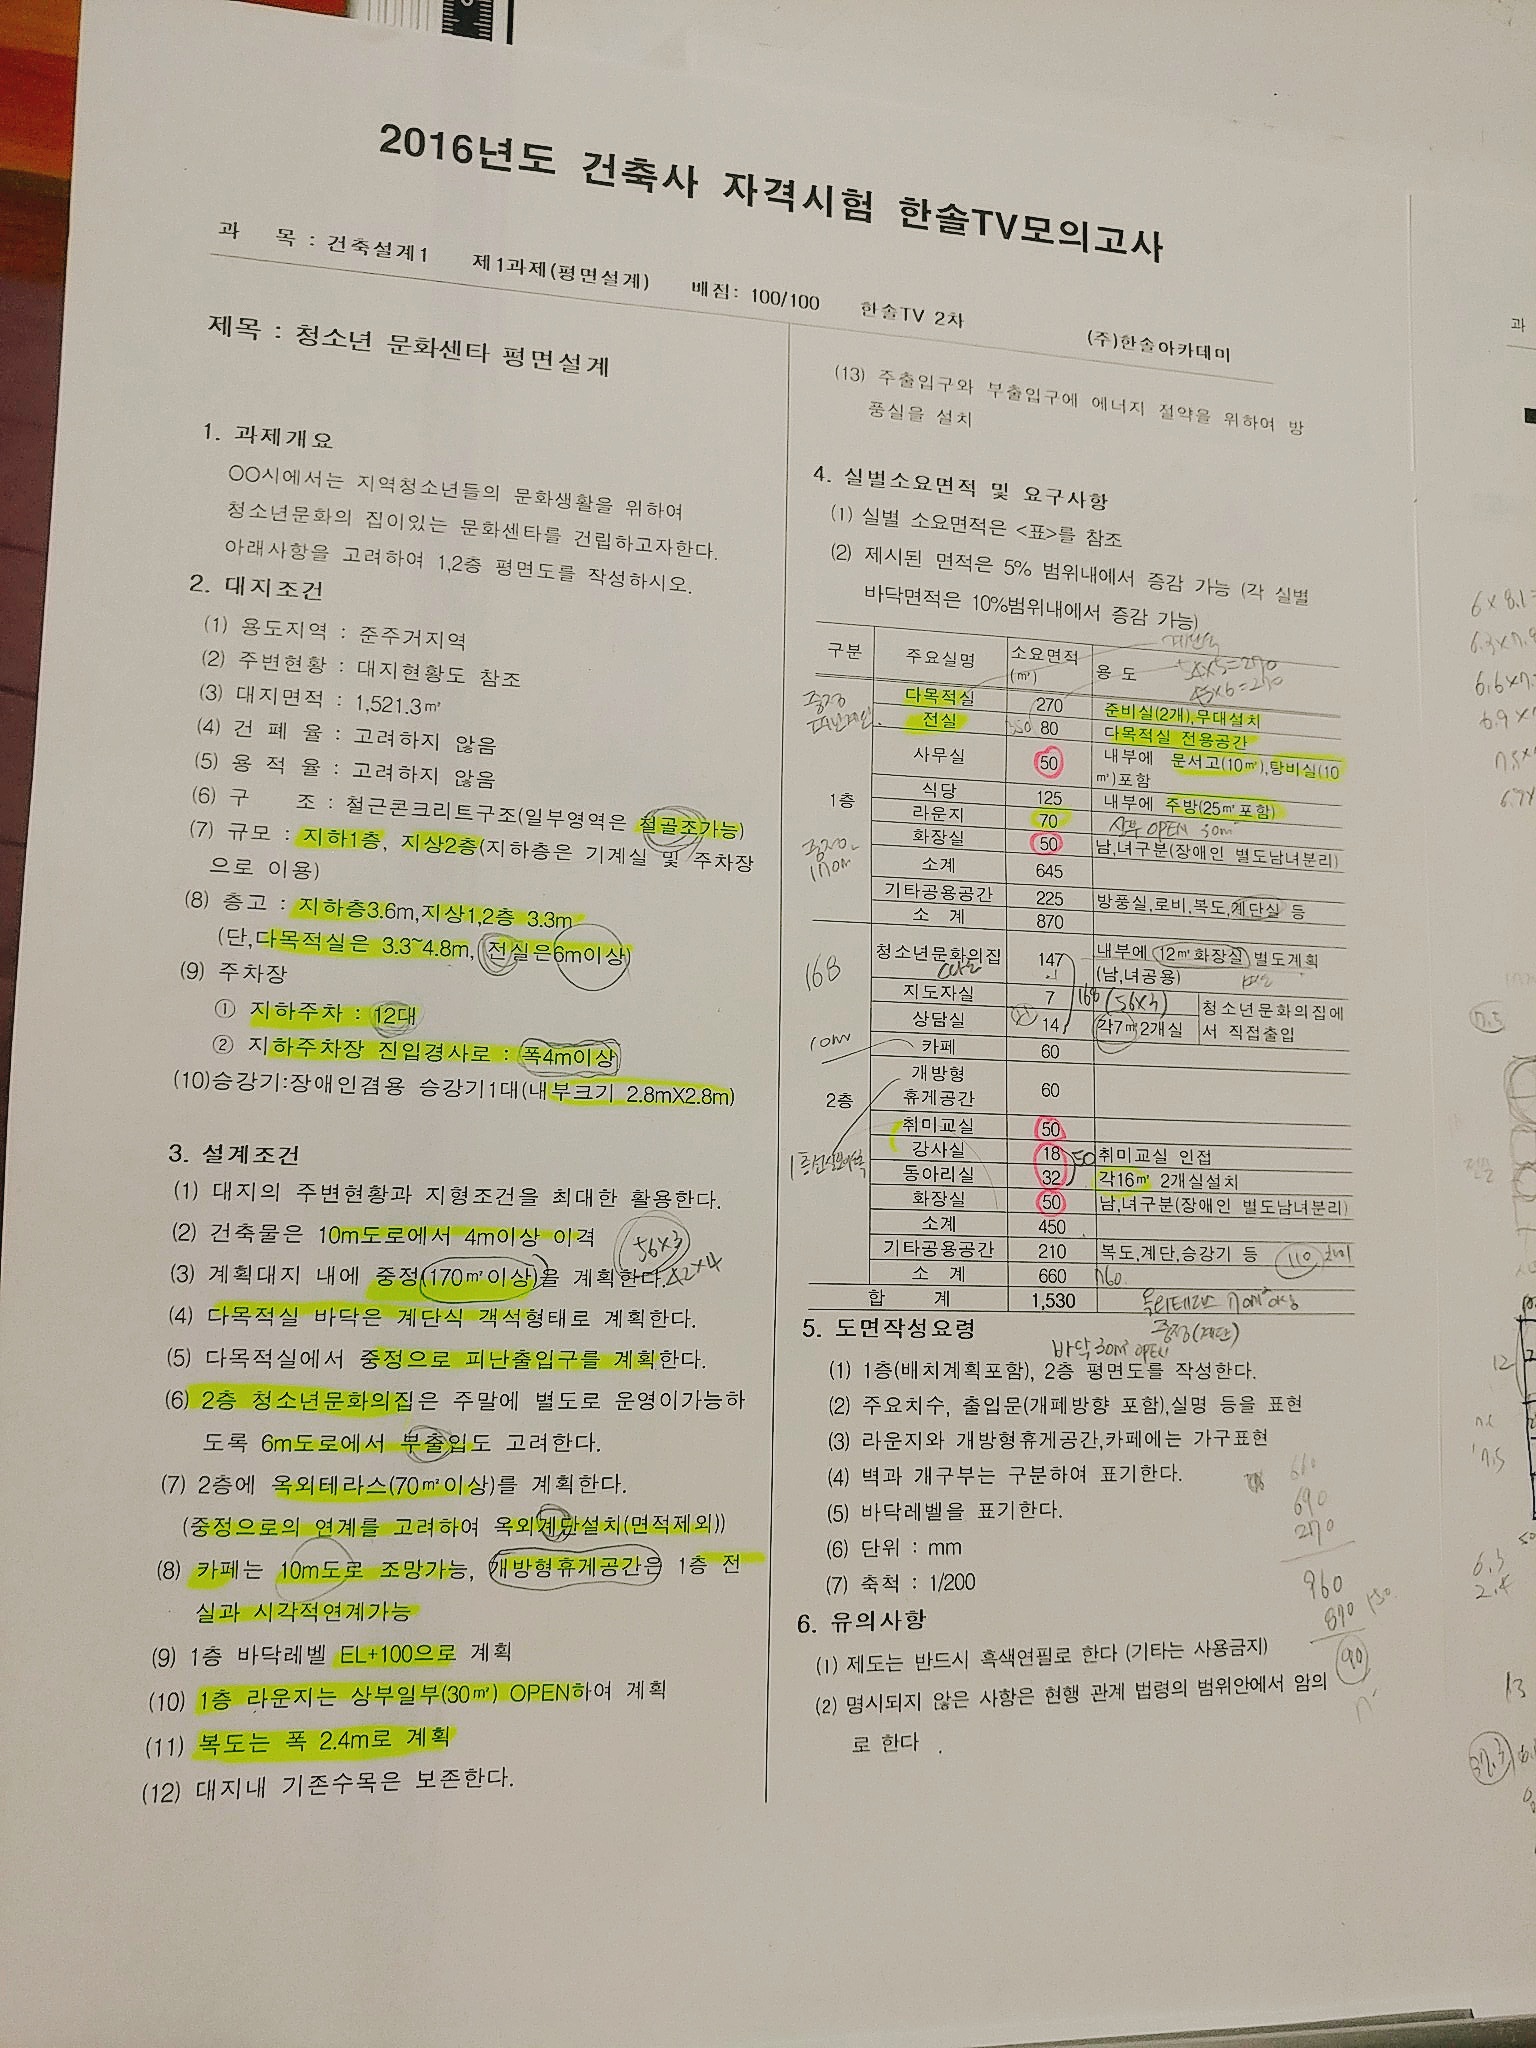 2016년도 건축사 자격시험 한솔TV모의고사
과 목 : 건축설계1 제1과제(평면설계) 배점: 100/100 한솔TV 2차 (주)한솔아카데미
제목 : 청소년 문화센타 평면설계
1. 과제개요
○○시에서는 지역청소년들의 문화생활을 위하여
청소년문화의 집이있는 문화센타를 건립하고자한다.
아래사항을 고려하여 1,2층 평면도를 작성하시오.
2. 대지조건
(1) 용도지역 : 준주거지역
(2) 주변현황 : 대지현황도 참조
(3) 대지면적 : 1,521.3㎡
(4) 건 폐 율 : 고려하지 않음
(5) 용 적 율 : 고려하지 않음
(6) 구 조 : 철근콘크리트구조(일부영역은 철골조가능)
(7) 규모 : 지하1층, 지상2층(지하층은 기계실 및 주차장
으로 이용)
(8) 층고 : 지하층3.6m,지상1,2층 3.3m
(단,다목적실은 3.3~4.8m, 전실은6m이상)
(9) 주차장
① 지하주차 : 12대
② 지하주차장 진입경사로 : 폭4m이상
(10)승강기:장애인겸용 승강기1대(내부크기 2.8mX2.8m)
3. 설계조건
(1) 대지의 주변현황과 지형조건을 최대한 활용한다.
(2) 건축물은 10m도로에서 4m이상 이격
56×3
(3) 계획대지 내에 중정(170㎡이상)을 계획한다.
42×4
(4) 다목적실 바닥은 계단식 객석형태로 계획한다.
(5) 다목적실에서 중정으로 피난출입구를 계획한다.
(6) 2층 청소년문화의집은 주말에 별도로 운영이가능하
도록 6m도로에서 부출입도 고려한다.
(7) 2층에 옥외테라스(70㎡이상)를 계획한다.
(중정으로의 연계를 고려하여 옥외계단설치(면적제외))
(8) 카페는 10m도로 조망가능, 개방형휴게공간은 1층 전
실과 시각적연계가능
(9) 1층 바닥레벨 EL+100으로 계획
(10) 1층 라운지는 상부일부(30㎡) OPEN하여 계획
(11) 복도는 폭 2.4m로 계획
(12) 대지내 기존수목은 보존한다.
(13) 주출입구와 부출입구에 에너지 절약을 위하여 방
풍실을 설치
4. 실별소요면적 및 요구사항
(1) 실별 소요면적은 <표>를 참조
(2) 제시된 면적은 5% 범위내에서 증감 가능 (각 실별
바닥면적은 10%범위내에서 증감 가능)
구분 주요실명 소요면적(㎡) 용 도
54×5=270
45×6=270
1층
다목적실 270 준비실(2개),무대설치
전실 80 다목적실 전용공간
사무실 50 내부에 문서고(10㎡),탕비실(10㎡)포함
식당 125 내부에 주방(25㎡포함)
라운지 70 상부 OPEN 30㎡
화장실 50 남,녀구분(장애인 별도남녀분리)
소계 645
기타공용공간 225 방풍실,로비,복도,계단실 등
소 계 870
2층
168
청소년문화의집 147 내부에 12㎡화장실 별도계획
(남,녀공용)
168 (56×3)
지도자실 7 청소년문화의집에서 직접출입
상담실 14 각7㎡2개실
10m
카페 60
개방형
휴게공간 60
취미교실 50
강사실 18 취미교실 인접
50
동아리실 32 각16㎡ 2개실설치
화장실 50 남,녀구분(장애인 별도남녀분리)
소계 450
기타공용공간 210 복도,계단,승강기 등
110
소 계 660
합 계 1,530
5. 도면작성요령
바닥 30㎡ OPEN
(1) 1층(배치계획포함), 2층 평면도를 작성한다.
(2) 주요치수, 출입문(개폐방향 포함),실명 등을 표현
(3) 라운지와 개방형휴게공간,카페에는 가구표현
(4) 벽과 개구부는 구분하여 표기한다.
(5) 바닥레벨을 표기한다.
(6) 단위 : mm
(7) 축척 : 1/200
660
690
270
960
870
90
6. 유의사항
(1) 제도는 반드시 흑색연필로 한다 (기타는 사용금지)
(2) 명시되지 않은 사항은 현행 관계 법령의 범위안에서 암의
로 한다 .
과
6.3
2.4
13